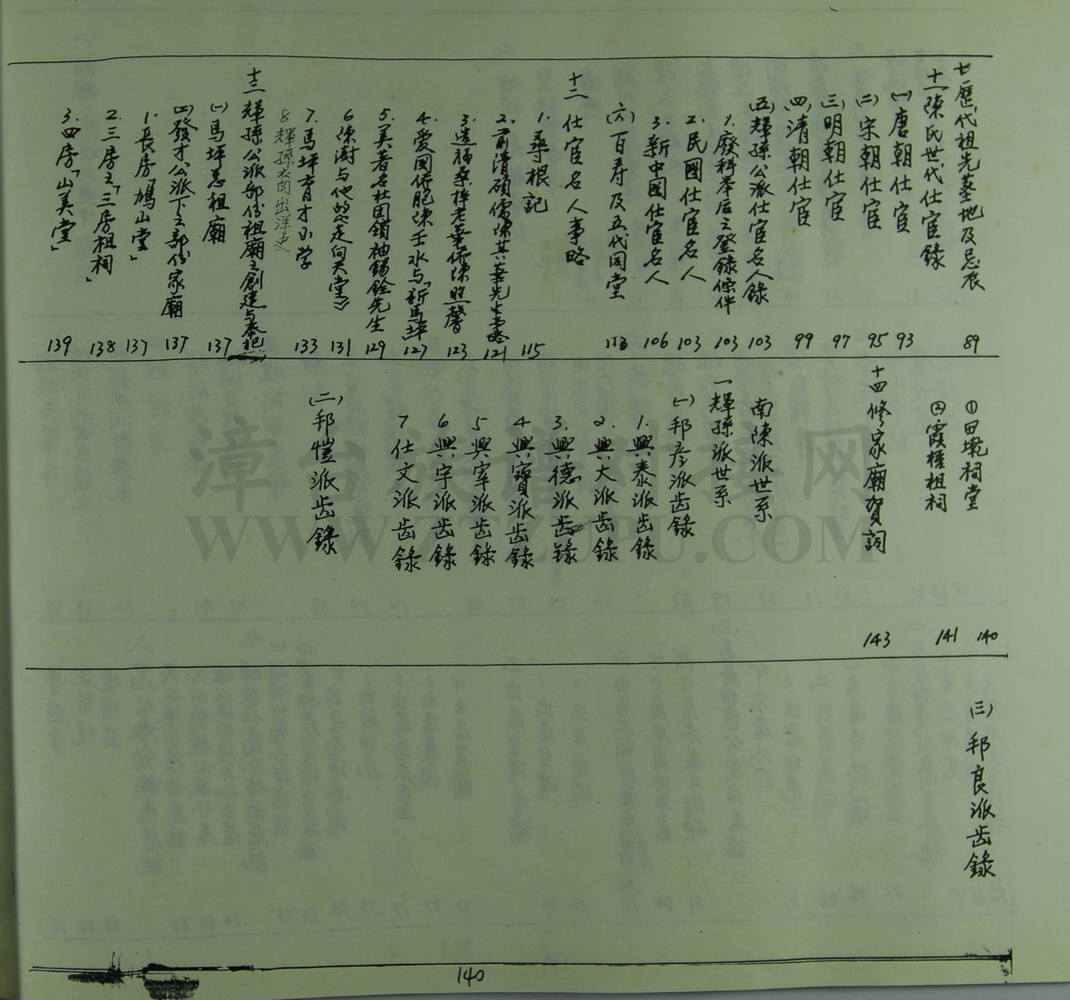 十、歷代祖先墓地及忌辰 89
十一陳氏世代仕宦錄
(一)唐朝仕宦 93
(二)宋朝仕宦 95
(三)明朝仕宦 97
(四)清朝仕宦 99
(五)輝孫公派仕宦名人錄 103
1.廢科举后之登錄條件 103
2.民國仕宦名人 103
3.新中國仕宦名人 106
(六)百寿及五代同堂
十二 仕宦名人事略
1.尋根記 115
2.前清碩儒陳其華先生 121
3.造福桑梓老華侨陳照馨 123
4.愛國侨胞陳壬水与「新馬坪 127
5.美著名社团領袖錫銓先生 129
6陳澍与他的《走向天堂》 131
7.馬坪育才小学 133
8輝孫衣向出洋史
十三 輝孫公派部份祖廟之創建与奉祀
(一)馬坪总祖廟 137
(二)發才公派下之部份家廟 137
1.長房「鳩山堂」 137
2.三房之「三房祖祠」 138
3.四房「山美堂」 139
①田墘祠堂 140
②霞梧祖祠 141
十四修家廟賀詞 143
南陳派世系
一輝孫派世系
(一)邦彥派齿錄
1.興泰派齿錄
2.興大派齿錄
3.興德派齿錄
4興寶派齿錄
5興宰派齿錄
6興宇派齿錄
7仕文派齿錄
(二)邦愷派齿錄
(三)邦良派齿錄
140
漳台族譜对接网
WWW.ZTZUPU.COM